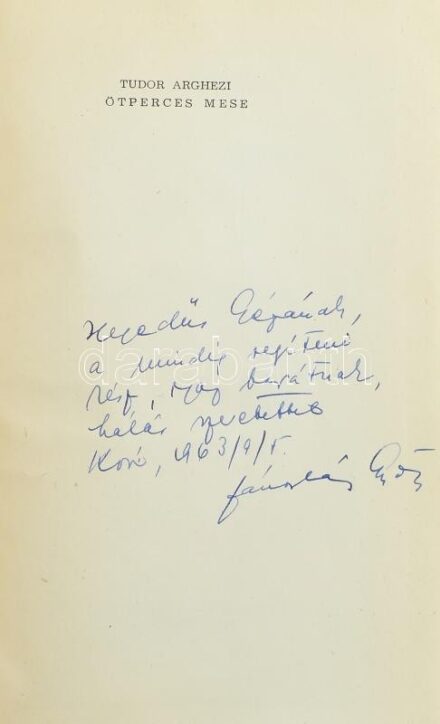 TUDOR ARGHEZI
ÖTPERCES MESE
Hegedűs Gézának,
a mindig segíteni
kész, igaz barátnak,
hálás szeretettel
1963/9/5.
Jánosházy György
darabanth